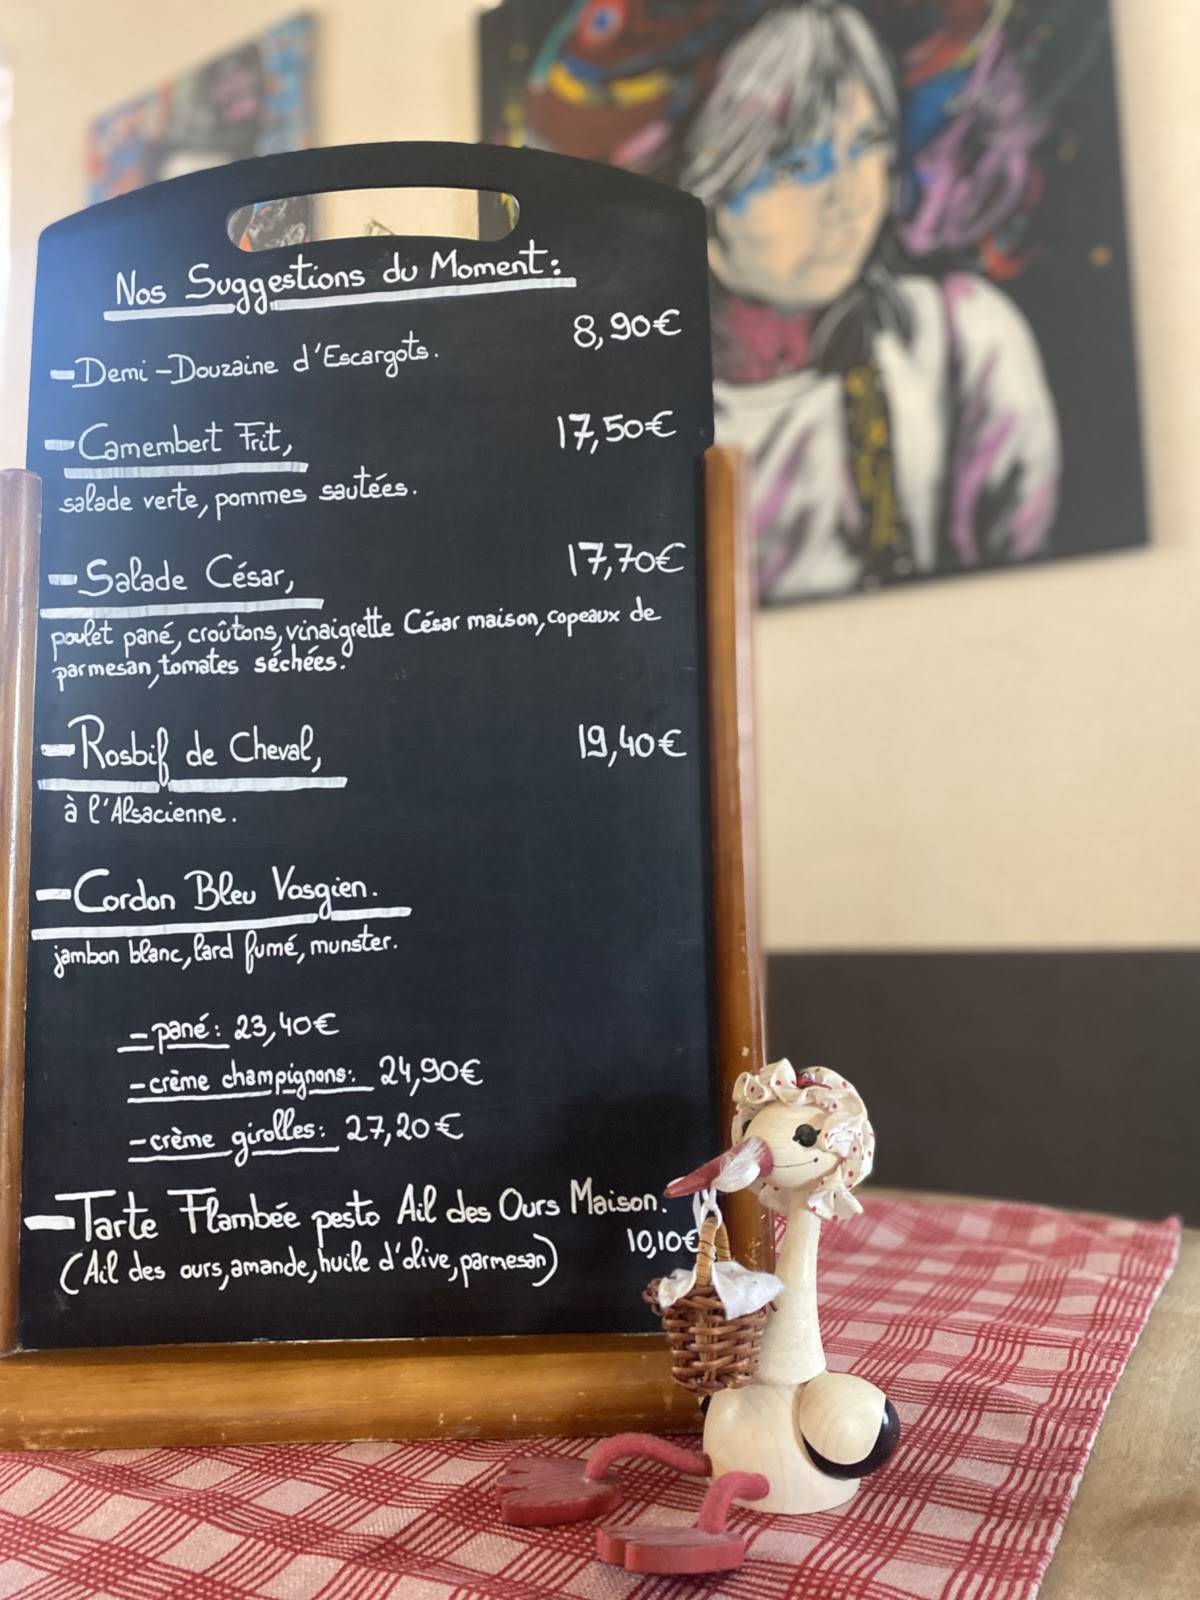 Nos Suggestions du Moment:
- Demi-Douzaine d'Escargots. 8,90€
- Camembert Frit, 17,50€
salade verte, pommes sautées.
- Salade César, 17,70€
poulet pané, croûtons, vinaigrette César maison, copeaux de
parmesan, tomates séchées.
- Rosbif de Cheval, 19,40€
à l'Alsacienne.
- Cordon Bleu Vosgien.
jambon blanc, lard fumé, munster.
- pané: 23,40€
- crème champignons: 24,90€
- crème girolles: 27,20€
- Tarte Flambée pesto Ail des Ours Maison.
10,10€
(Ail des ours, amande, huile d'olive, parmesan)